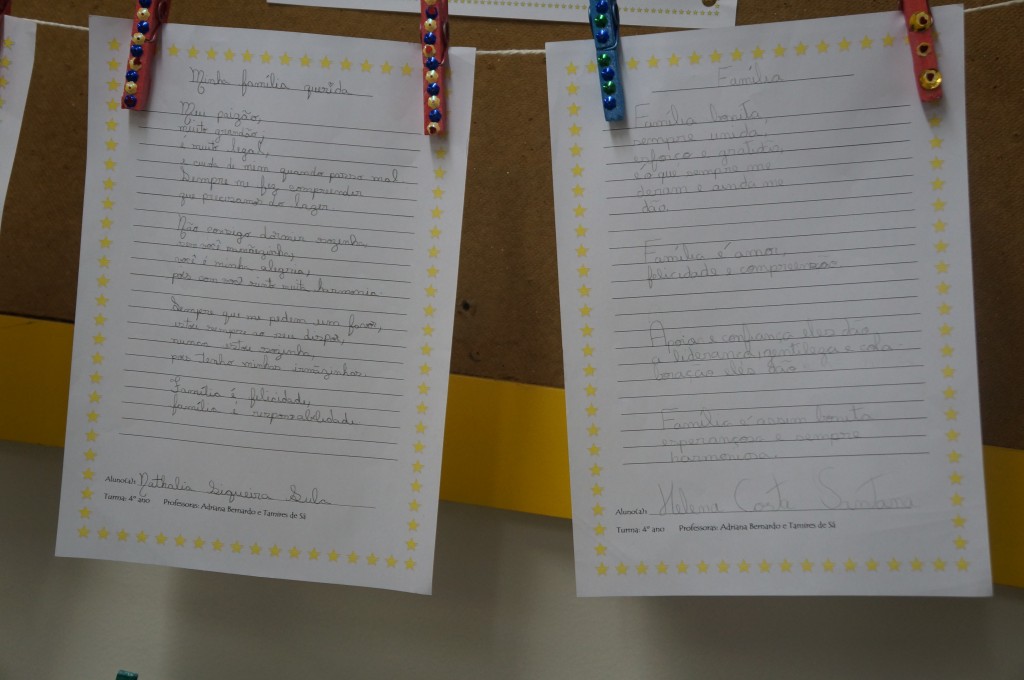 Minha família querida
Meu paizão,
muito grandão,
é muito legal,
e cuida de mim quando passo mal
Sempre me fez compreender
que precisamos do lazer
Não consigo dormir sozinha
sem você mamãezinha,
você é minha alegria,
pois com você sinto muita harmonia.
Sempre que me pedem um favor,
estou sempre ao seu dispor,
nunca estou sozinha,
pois tenho minhas irmãzinhas.
Família é felicidade,
família é responsabilidade.
Aluno(a): Nathalia Siqueira
Turma: 4º ano Professoras: Adriana Bernardo e Tamires de Sá
Família
Família bonita,
sempre unida,
esforço e gratidão,
é o que sempre me
deram e ainda me
dão.
Família é amor,
felicidade e compreensão
Apoio e confiança eles dão,
a liderança, gentileza e cola-
boração eles dão.
Família é assim bonita
esperançosa e sempre
harmoniosa.
Aluno(a): Helena Santana
Turma: 4º ano Professoras: Adriana Bernardo e Tamires de Sá